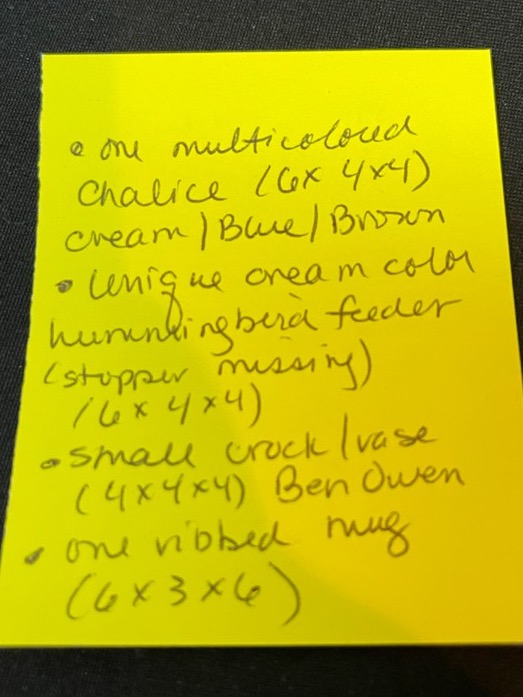 • one multicolored
Chalice (6x 4x4)
cream/Blue/Brown
• Unique cream color
hummingbird feeder
(stopper missing)
(6x 4x4)
• small crock/vase
(4x4x4) Ben Owen
• one ribbed mug
(6x3x6)